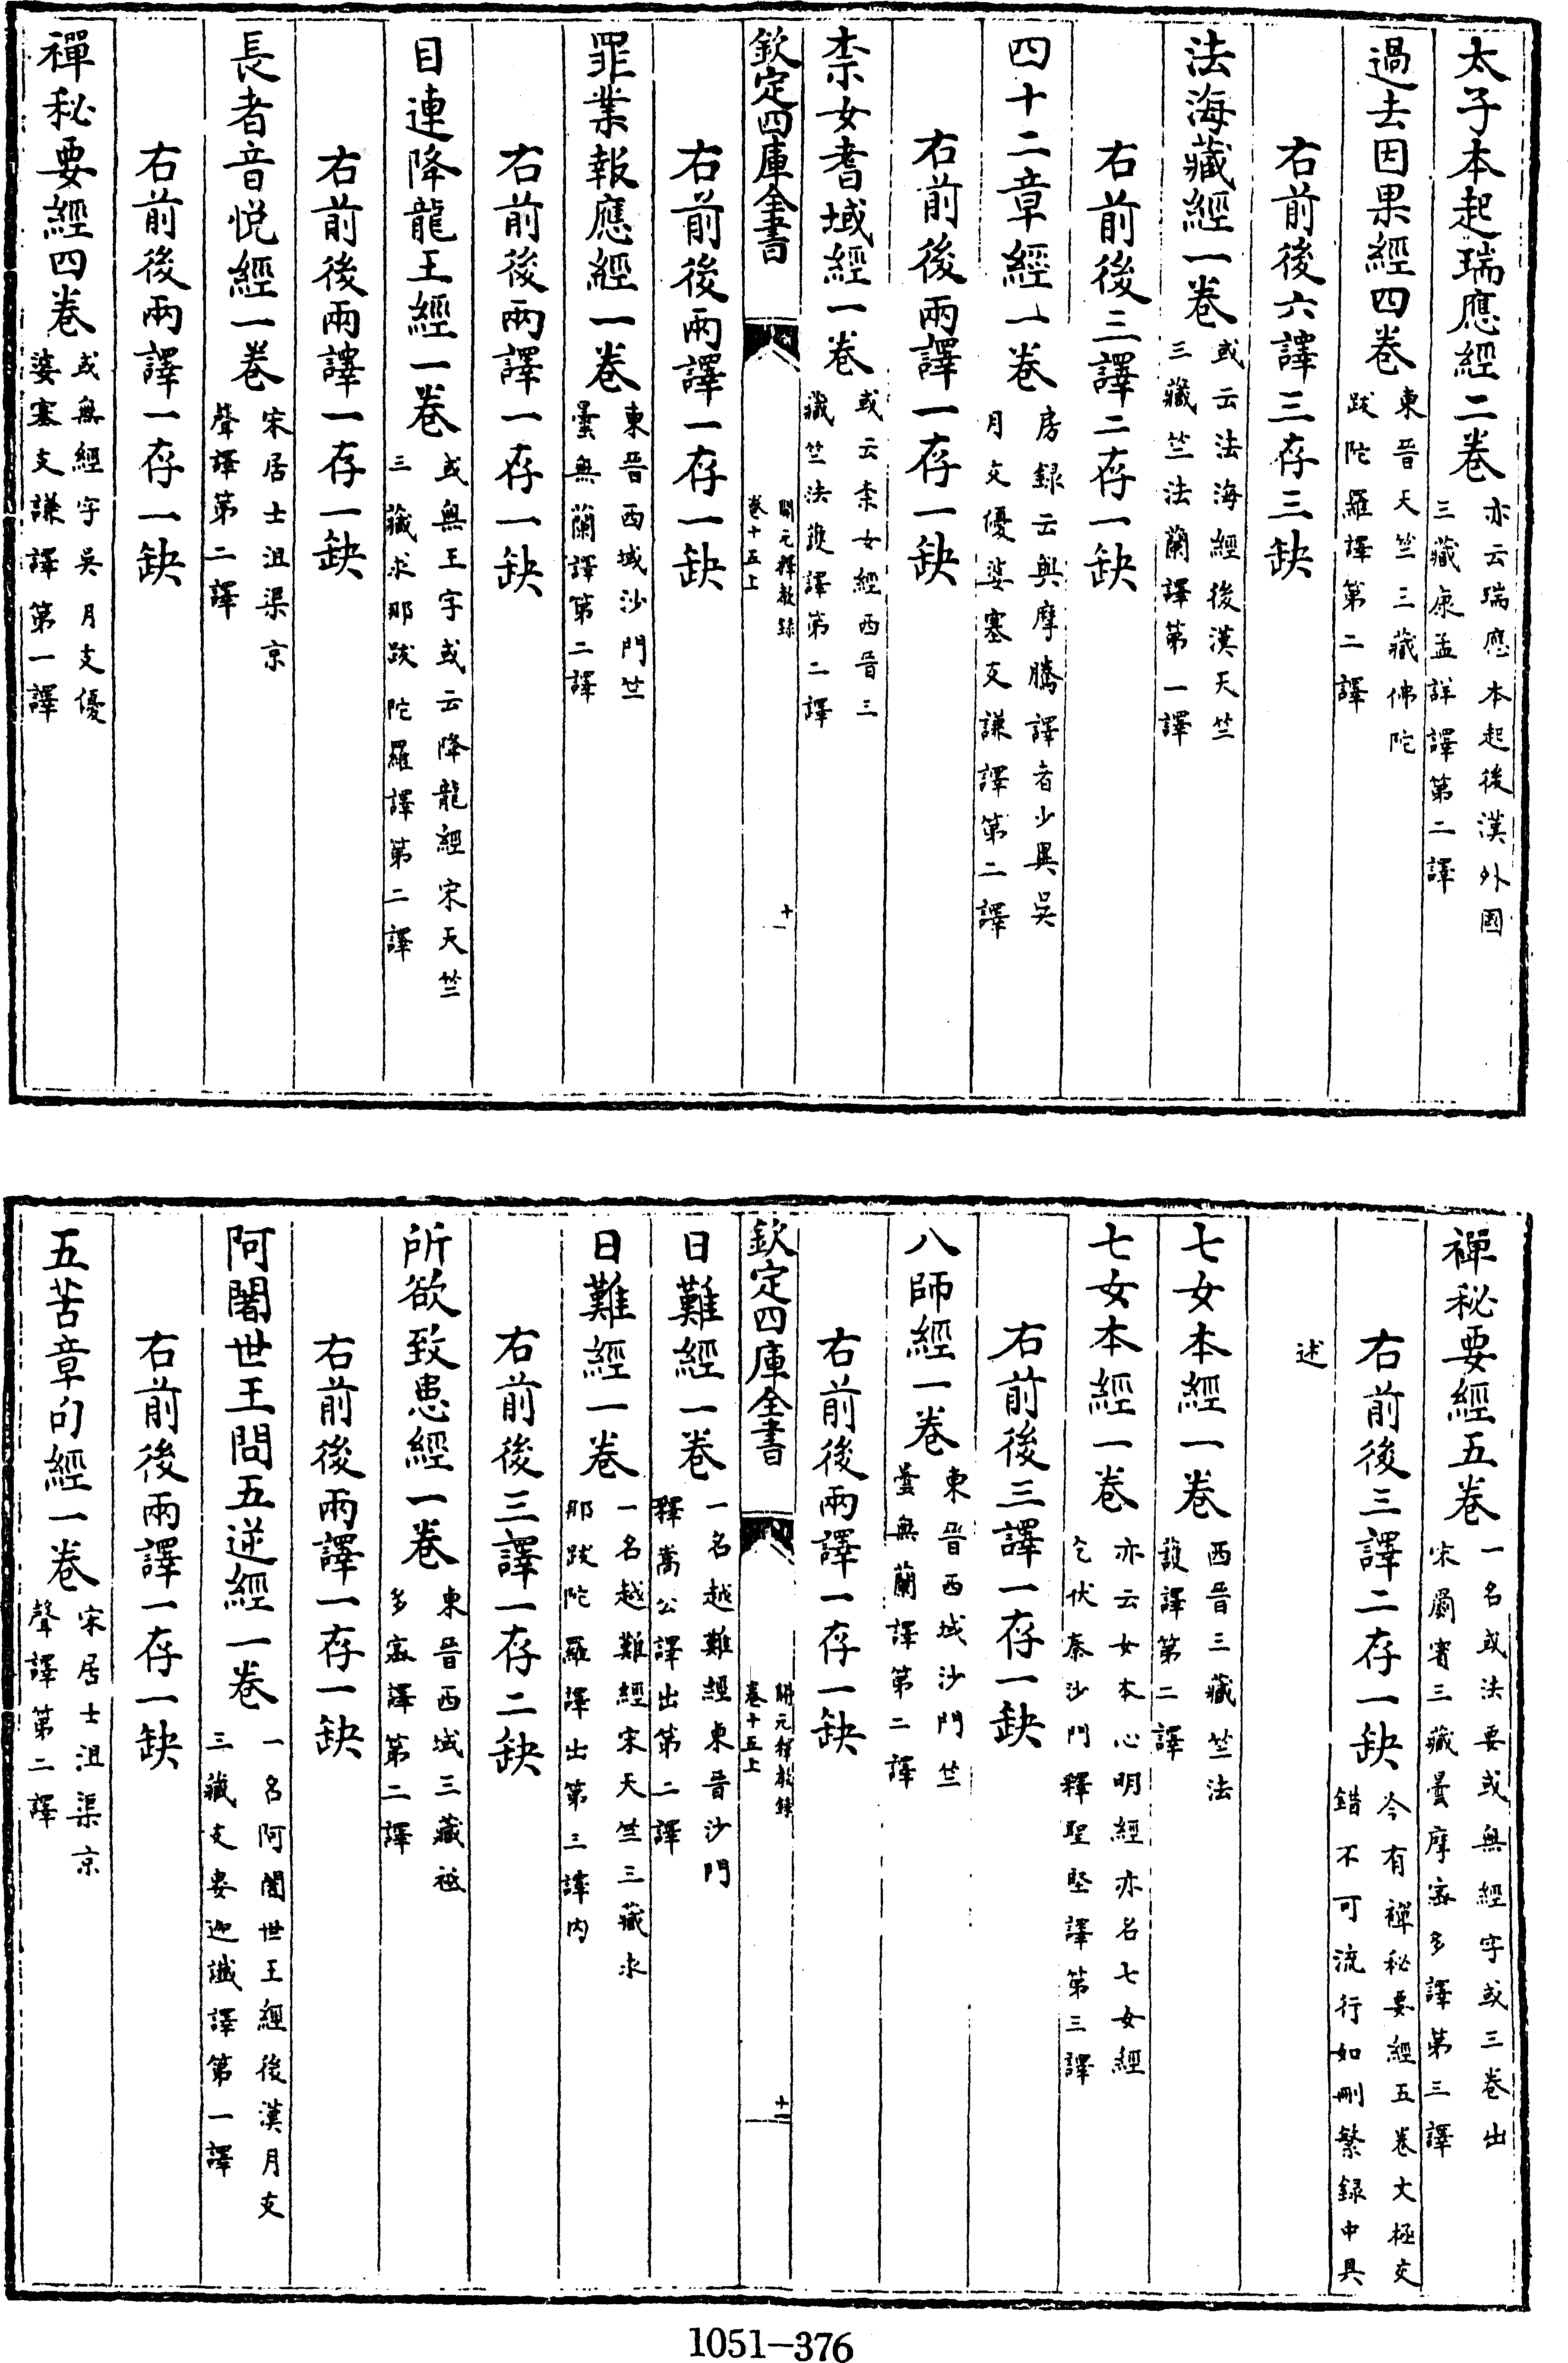 太子本起瑞應經二卷亦云瑞應本起後漢外國三藏康孟詳譯第二譯
過去因果經四卷東晉天竺三藏佛陀跋陀羅譯第二譯
右前後六譯三存三缺
法海藏經一卷或云法海經後漢天竺三藏竺法蘭譯第一譯
右前後三譯二存一缺
四十二章經一卷房録云與摩騰譯者少異吳月支優婆塞支謙譯第二譯
右前後兩譯一存一缺
柰女耆域經一卷或云柰女經西晉三藏竺法護譯第二譯
欽定四庫全書
開元釋教録
卷十五上
十一
右前後兩譯一存一缺
罪業報應經一卷東晉西域沙門竺曇無蘭譯第二譯
右前後兩譯一存一缺
目連降龍王經一卷或無王字或云降龍經宋天竺三藏求那跋陀羅譯第二譯
右前後兩譯一存一缺
長者音悅經一卷宋居士沮渠京聲譯第二譯
右前後兩譯一存一缺
禪秘要經四卷或無經字吳月支優婆塞支謙譯第一譯
禪秘要經五卷一名或法要或無經字或三卷出宋罽賓三藏曇摩蜜多譯第三譯
右前後三譯二存一缺今有禪秘要經五卷文極交錯不可流行如刪繁録中具
述
七女本經一卷西晉三藏竺法護譯第二譯
七女本經一卷亦云女本心明經亦名七女經乞伏秦沙門釋聖堅譯第三譯
右前後三譯一存一缺
八師經一卷東晉西域沙門竺曇無蘭譯第二譯
右前後兩譯一存一缺
欽定四庫全書
開元釋教録
卷十五上
十二
日難經一卷一名越難經東晉沙門釋嵩公譯出第二譯
日難經一卷一名越難經宋天竺三藏求那跋陀羅譯出第三譯內
右前後三譯一存二缺
所欲致患經一卷東晉西域三藏祗多蜜譯第二譯
右前後兩譯一存一缺
阿闍世王問五逆經一卷一名阿闍世王經後漢月支三藏支婁迦讖譯第一譯
右前後兩譯一存一缺
五苦章句經一卷宋居士沮渠京聲譯第二譯
1051—376